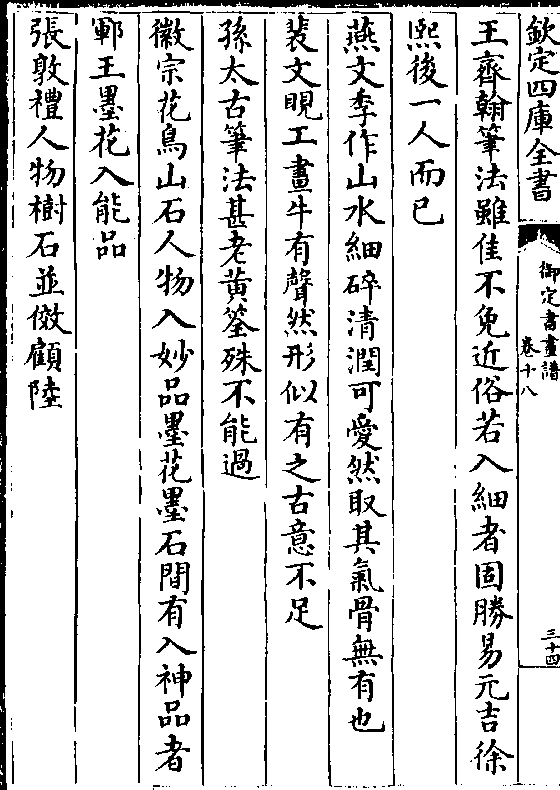 欽定四庫全書
御定書畫譜
卷十八
三十四
王齊翰筆法雖佳不免近俗若入細者固勝易元吉徐
熙後一人而已
燕文季作山水細碎清潤可愛然取其氣骨無有也
裴文睍工畫牛有聲然形似有之古意不足
孫太古筆法甚老黄筌殊不能過
徽宗花鳥山石人物入妙品墨花墨石間有入神品者
鄆王墨花入能品
張敦禮人物樹石並傚顧陸